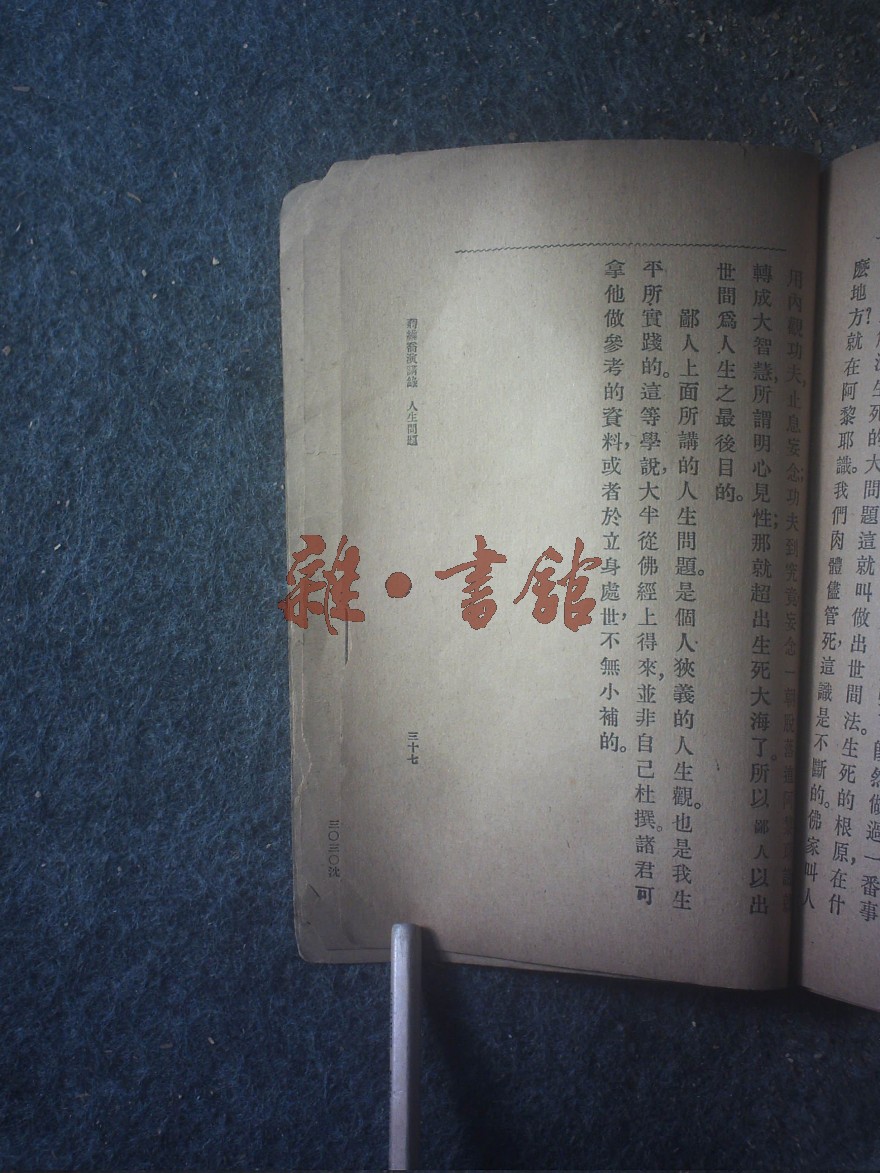 麽地方?就在阿黎耶識。我們肉體儘管死,這識是不斷的。佛家叫人
用內觀功夫,止息妄念;功夫到究竟,妄念一朝脫落,
轉成大智慧,所謂明心見性;那就超出生死大海了。所以鄙人以出
世間爲人生之最後目的。
鄙人上面所講的人生問題。是個人狹義的人生觀。也是我生
平所實踐的。這等學說,大半從佛經上得來,並非自己杜撰。諸君可
拿他做參考的資料,或者於立身處世,不無小補的。
演講錄 人生問題
三十七
三〇三〇沈
雜·書舘